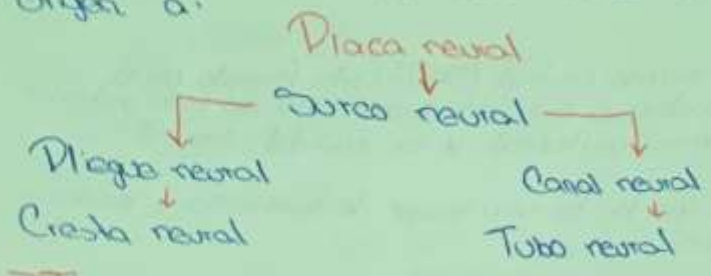 origen a:
Placa neural
Surco neural
Pliegue neural
Canal neural
Cresta neural
Tubo neural